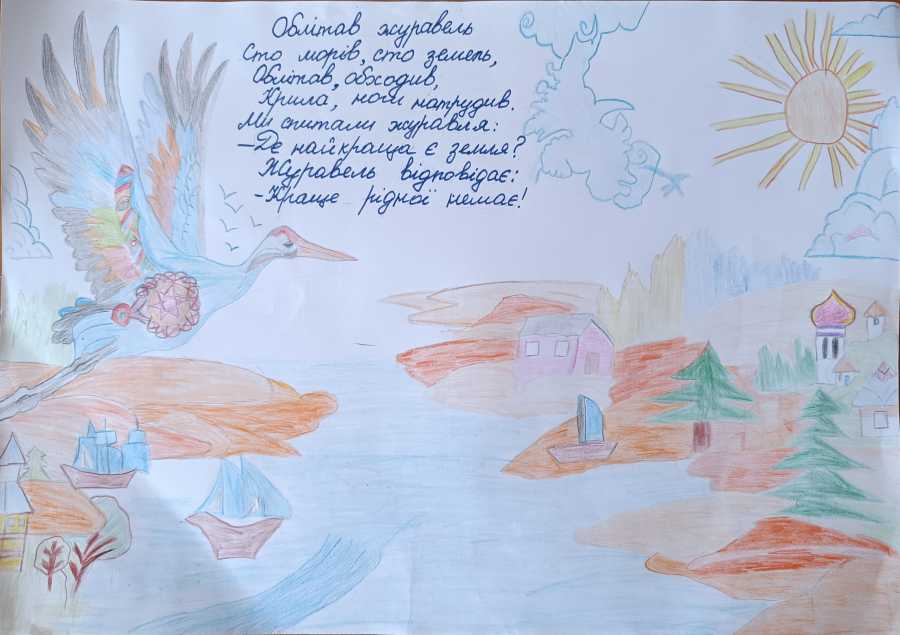 Облітав журавель
Сто морів, сто земель,
Облітав, обходив,
Крила, ноги натрудив.
Ми спитали журавля:
–Де найкраща є земля?
Журавель відповідає:
–Краще рідної немає!